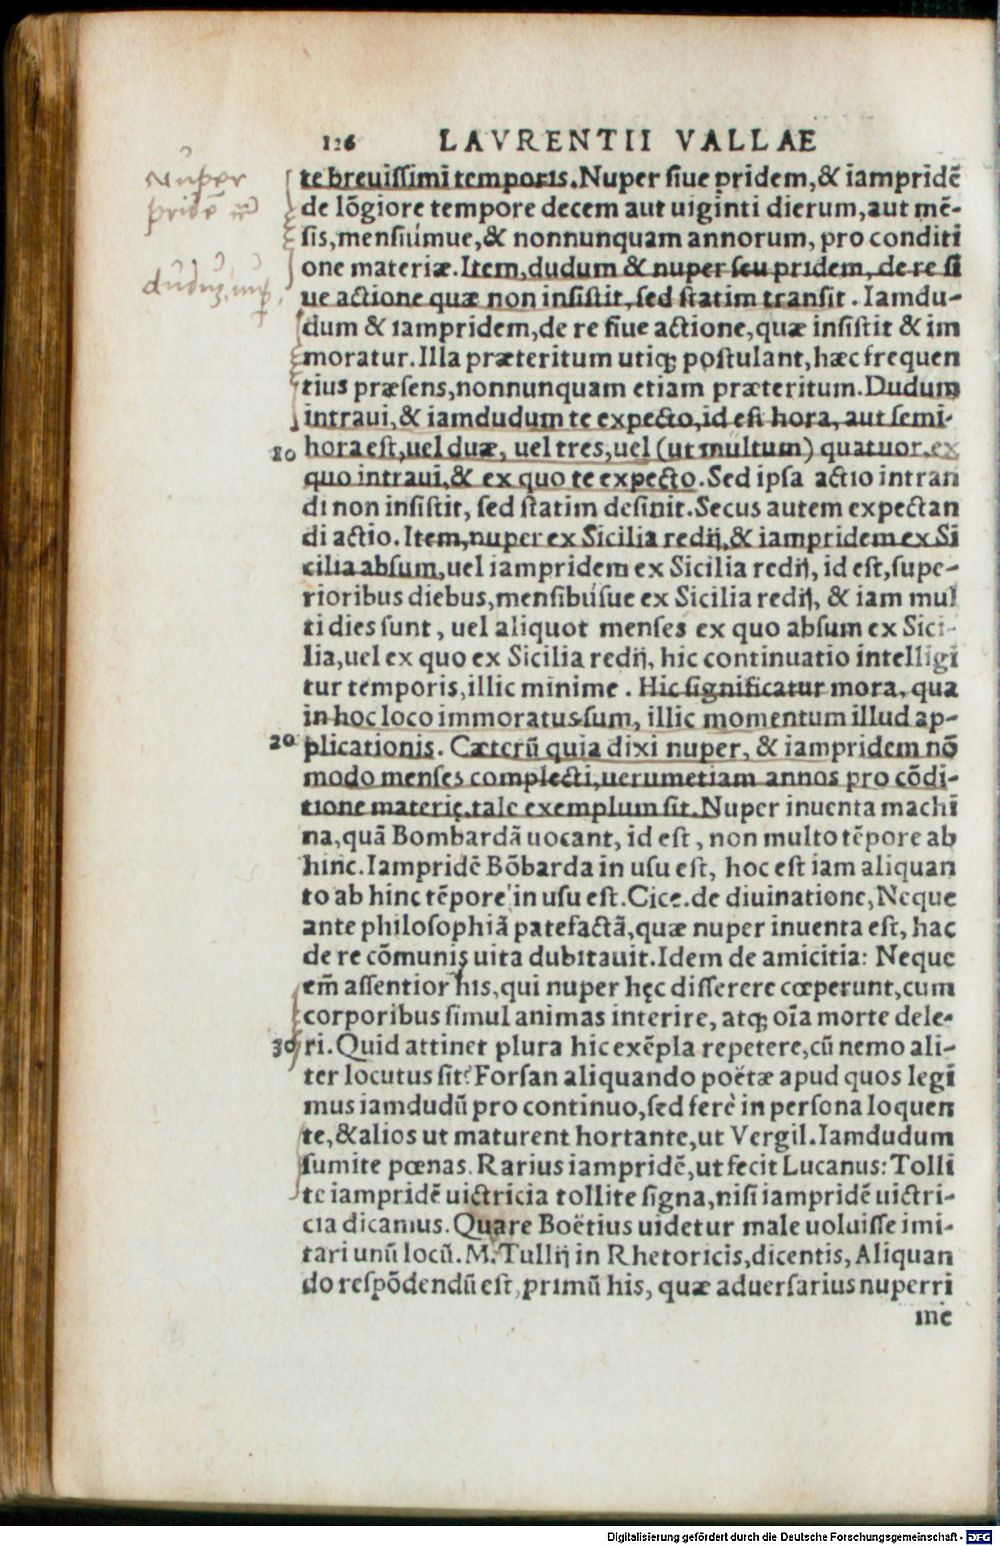 126 LAVRENTII VALLAE
te breuissimi temporis. Nuper siue pridem, & iampridē
de lōgiore tempore decem aut uiginti dierum, aut mē-
sis, mensiúmue, & nonnunquam annorum, pro conditi
one materiæ. Item, dudum & nuper seu pridem, de re si
ue actione quæ non insistit, sed statim transit. Iamdu-
dum & iampridem, de re siue actione, quæ insistit & im
moratur. Illa præteritum utiq; postulant, hæc frequen
tius præsens, nonnunquam etiam præteritum. Dudum
intraui, & iamdudum te expecto, id est hora, aut semi-
10 hora est, uel duæ, uel tres, uel (ut multum) quatuor, ex
quo intraui, & ex quo te expecto. Sed ipsa actio intran
di non insistit, sed statim desinit. Secus autem expectan
di actio. Item, nuper ex Sicilia redij, & iampridem ex Si
cilia absum, uel iampridem ex Sicilia redij, id est, supe-
rioribus diebus, mensibúsue ex Sicilia redij, & iam mul
ti dies sunt, uel aliquot menses ex quo absum ex Sici-
lia, uel ex quo ex Sicilia redij, hic continuatio intelligi
tur temporis, illic minime. Hic significatur mora, qua
in hoc loco immoratus sum, illic momentum illud ap-
20 plicationis. Cæterū quia dixi nuper, & iampridem nō
modo menses complecti, uerumetiam annos pro cōdi-
tione materię, tale exemplum sit. Nuper inuenta machi
na, quā Bombardā uocant, id est, non multo tēpore ab
hinc. Iampridē Bōbarda in usu est, hoc est iam aliquan
to ab hinc tēpore in usu est. Cice. de diuinatione, Neque
ante philosophiā patefactā, quæ nuper inuenta est, hac
de re cōmunis uita dubitauit. Idem de amicitia: Neque
em̄ assentior his, qui nuper hęc disserere cœperunt, cum
corporibus simul animas interire, atq; oīa morte dele-
30 ri. Quid attinet plura hic exēpla repetere, cū nemo ali-
ter locutus sit? Forsan aliquando poëtæ apud quos legi
mus iamdudū pro continuo, sed ferè in persona loquen
te, & alios ut maturent hortante, ut Vergil. Iamdudum
sumite pœnas. Rarius iampridē, ut fecit Lucanus: Tolli
te iampridē uictricia tollite signa, nisi iampridē uictri-
cia dicamus. Quare Boëtius uidetur male uoluisse imi-
tari unū locū. M. Tullij in Rhetoricis, dicentis, Aliquan
do respōdendū est, primū his, quæ aduersarius nuperri
me
nuper
pridē
dudum, nup
Digitalisierung gefördert durch die Deutsche Forschungsgemeinschaft - DFG